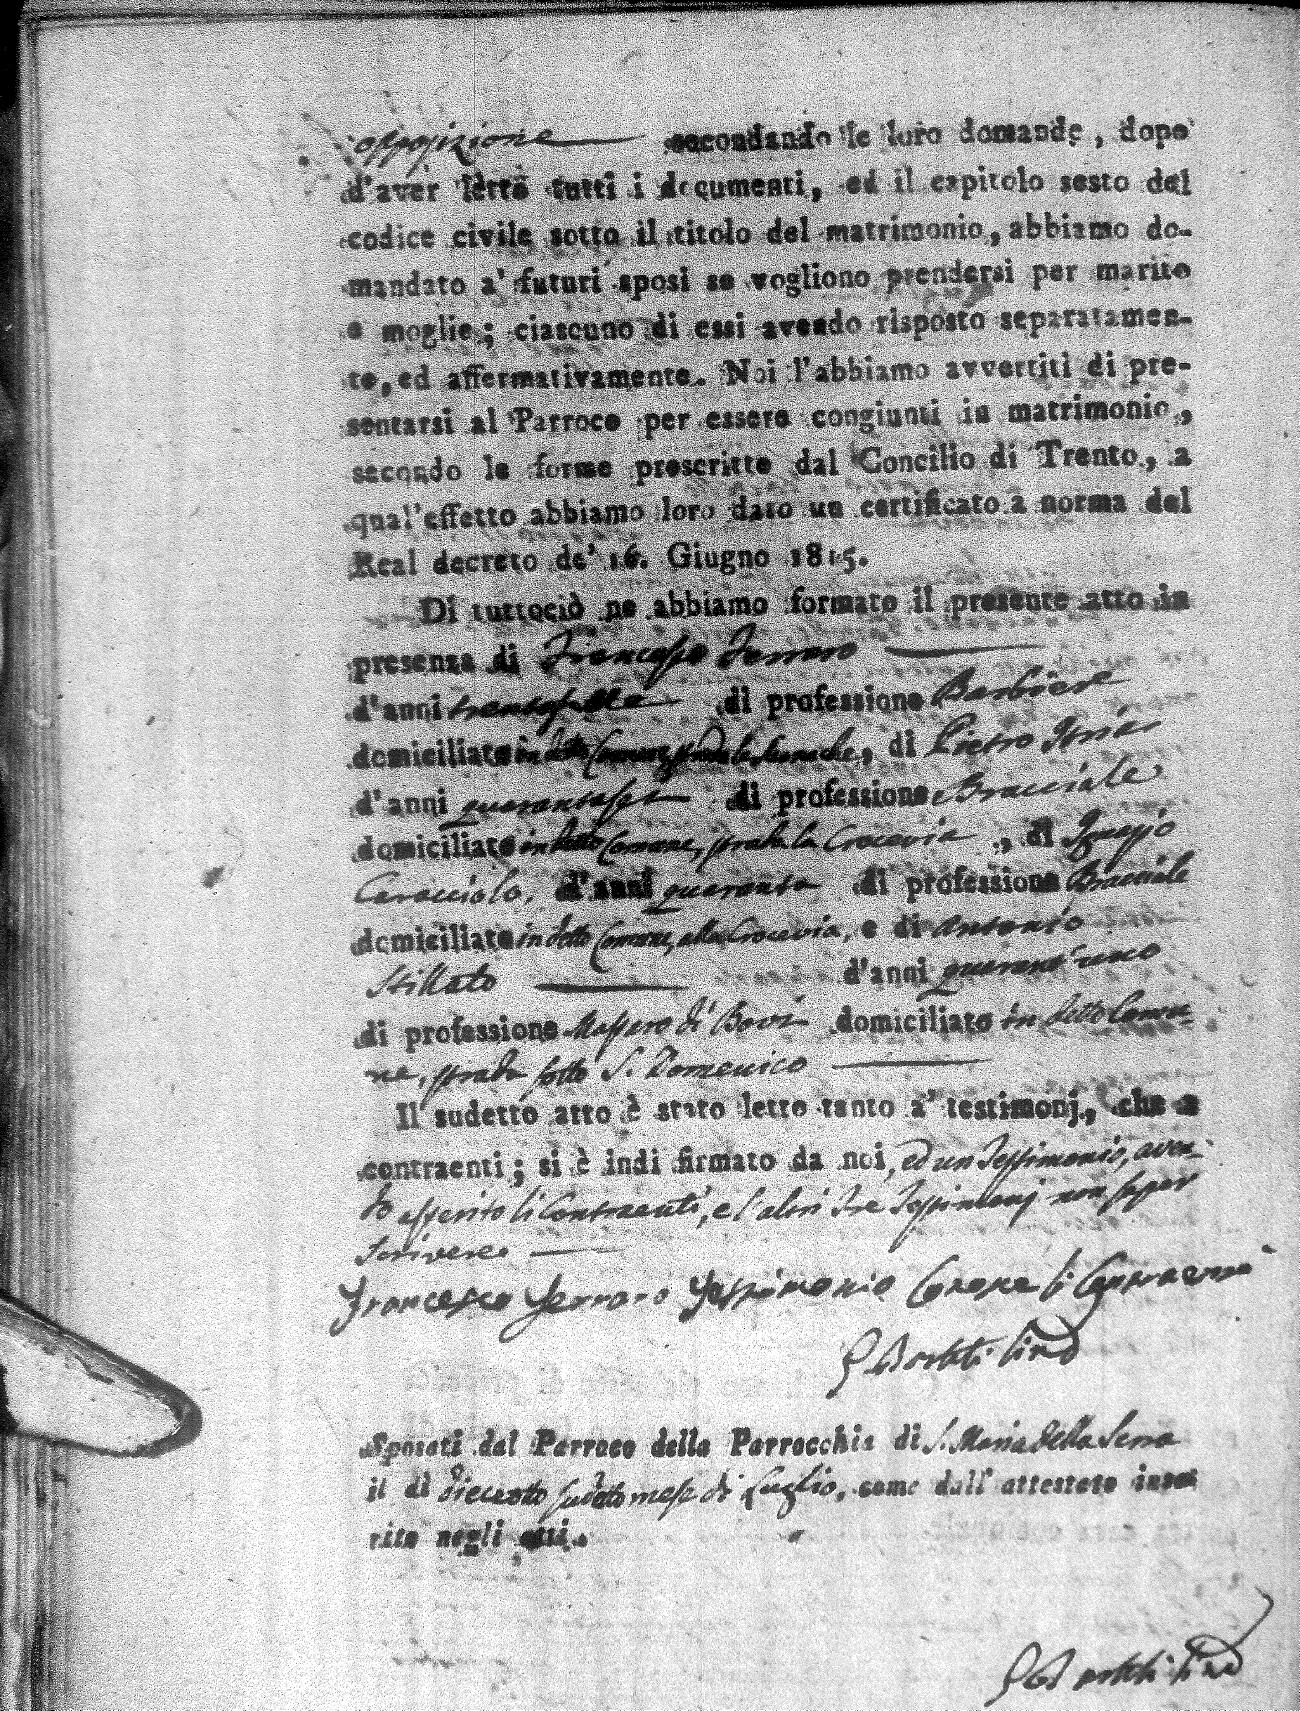 opposizione secondando le loro domande, dopo
d'aver letto tutti i documenti, ed il capitolo sesto del
codice civile sotto il titolo del matrimonio, abbiamo do-
mandato a' futuri sposi se vogliono prendersi per marito
e moglie; ciascuno di essi avendo risposto separatamen-
te, ed affermativamente. Noi l'abbiamo avvertiti di pre-
sentarsi al Parroco per essere congiunti in matrimonio,
secondo le forme prescritte dal Concilio di Trento, a
qual'effetto abbiamo loro dato un certificato a norma del
Real decreto de' 16. Giugno 1815.
Di tuttociò ne abbiamo formato il presente atto in
presenza di Francesco Ferraro
d'anni trentasette di professione Barbiere
domiciliato in detto Comune, strada, di Pietro
d'anni quarantasei di professione Bracciale
domiciliato in detto Comune, strada la Crocevia, di
Caracciolo, d'anni quaranta di professione Bracciale
domiciliato in detto Comune, alla Crocevia, e di Antonio
Stillato d'anni quarant'uno
di professione Massaro di Bovi domiciliato in detto Comu-
ne, strada sotto S. Domenico
Il sudetto atto è stato letto tanto a' testimonj, che a
contraenti; si è indi firmato da noi, ed un Testimonio, aven-
do asserito li Contraenti, e l'altri tre Testimonj non saper
scrivere
Francesco Ferraro Testimonio Conosce li Contraenti
Sposati dal Parroco della Parrocchia di S. Maria della Serra
il dì dieciotto sudetto mese di Luglio, come dall' attestato inse-
rito negli atti.